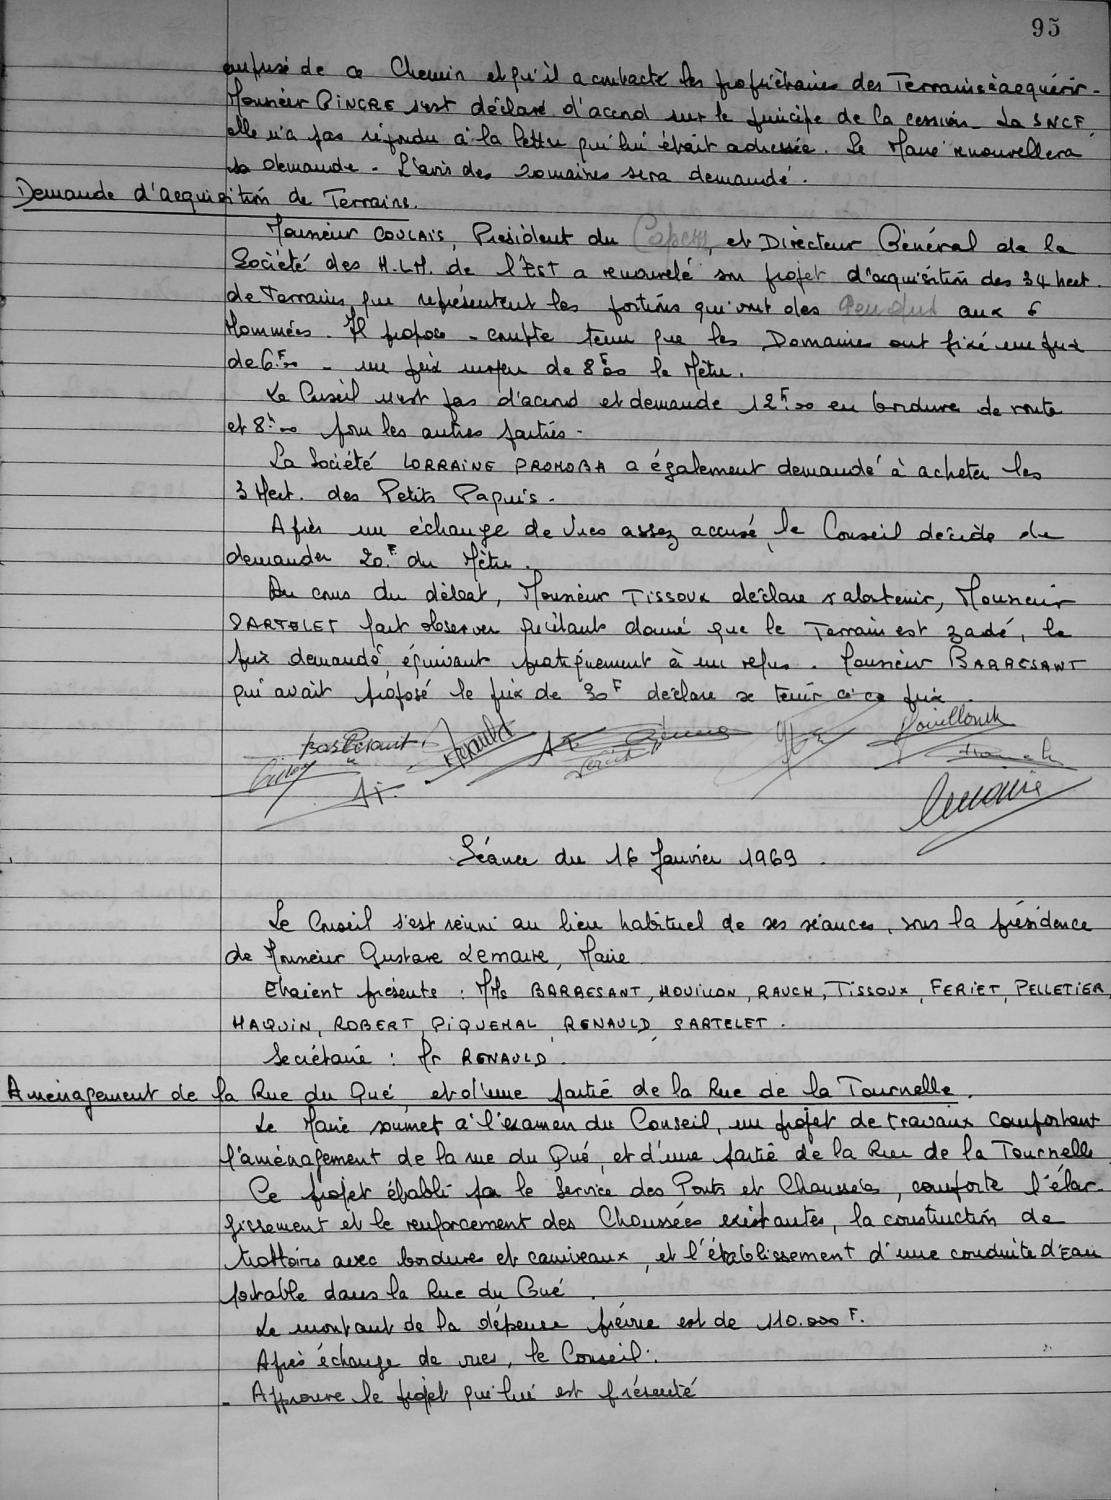 95
de ce Chemin et qu'il a contacté les propriétaires des Terrains à acquérir -
Monsieur PINCRE s'est déclaré d'accord sur le principe de la cession. La SNCF,
elle n'a pas répondu à la lettre qui lui était adressée. Le Maire renouvellera
sa demande - L'avis des Domaines sera demandé.
Demande d'acquisition de Terrains.
Monsieur COULAIS, Président du et Directeur Général de la
Société des H.L.M. de l'EST a renouvelé son projet d'acquisition des 34 hect.
de Terrains que représentent les portions qui vont des aux 6
Hommées. Il propose - compte tenu que les Domaines ont fixé un prix
de 6F00 - un prix moyen de 8F00 le Mètre.
Le Conseil n'est pas d'accord et demande 12F00 en bordure de route
et 8F00 pour les autres parties -
La Société LORRAINE PROMOBA a également demandé à acheter les
3 Hect. des Petits Paquis -
Après un échange de vues assez accusé, le Conseil décide de
demander 20F du Mètre.
Au cours du débat, Monsieur TISSOUX déclare s'abstenir, Monsieur
SARTELET fait observer qu'étant donné que le Terrain est zadé, le
prix demandé, équivaut pratiquement à un refus. Monsieur BARRESANT
qui avait proposé le prix de 30F déclare se tenir à ce prix.
Renauld
Lemaire
Séance du 16 Janvier 1969.
Le Conseil s'est réuni au lieu habituel de ses séances, sous la présidence
de Monsieur Gustave Lemaire, Maire
Etaient présents : MMs BARRESANT, MOUILLON, RAUCH, TISSOUX, FERIET, PELLETIER,
HAQUIN, ROBERT, PIQUEMAL, RENAULD, SARTELET.
Secrétaire : Mr RENAULD.
Aménagement de la Rue du Gué, et d'une partie de la Rue de la Tournelle.
Le Maire soumet à l'examen du Conseil, un projet de travaux comportant
l'aménagement de la rue du Gué, et d'une partie de la Rue de la Tournelle
Ce projet établi par le Service des Ponts et Chaussées, comporte l'élar-
gissement et le renforcement des Chaussées existantes, la construction de
trottoirs avec bordures et caniveaux, et l'établissement d'une conduite d'Eau
potable dans la Rue du Gué.
Le montant de la dépense prévue est de 110.000 F.
Après échange de vues, le Conseil :
- Approuve le projet qui lui est présenté